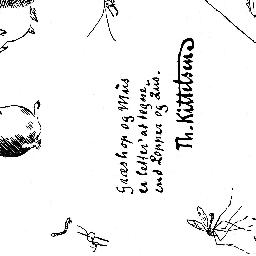 Græshop og Mus
er letter' at tegne
end Lopper og Lus.
Th. Kittelsen